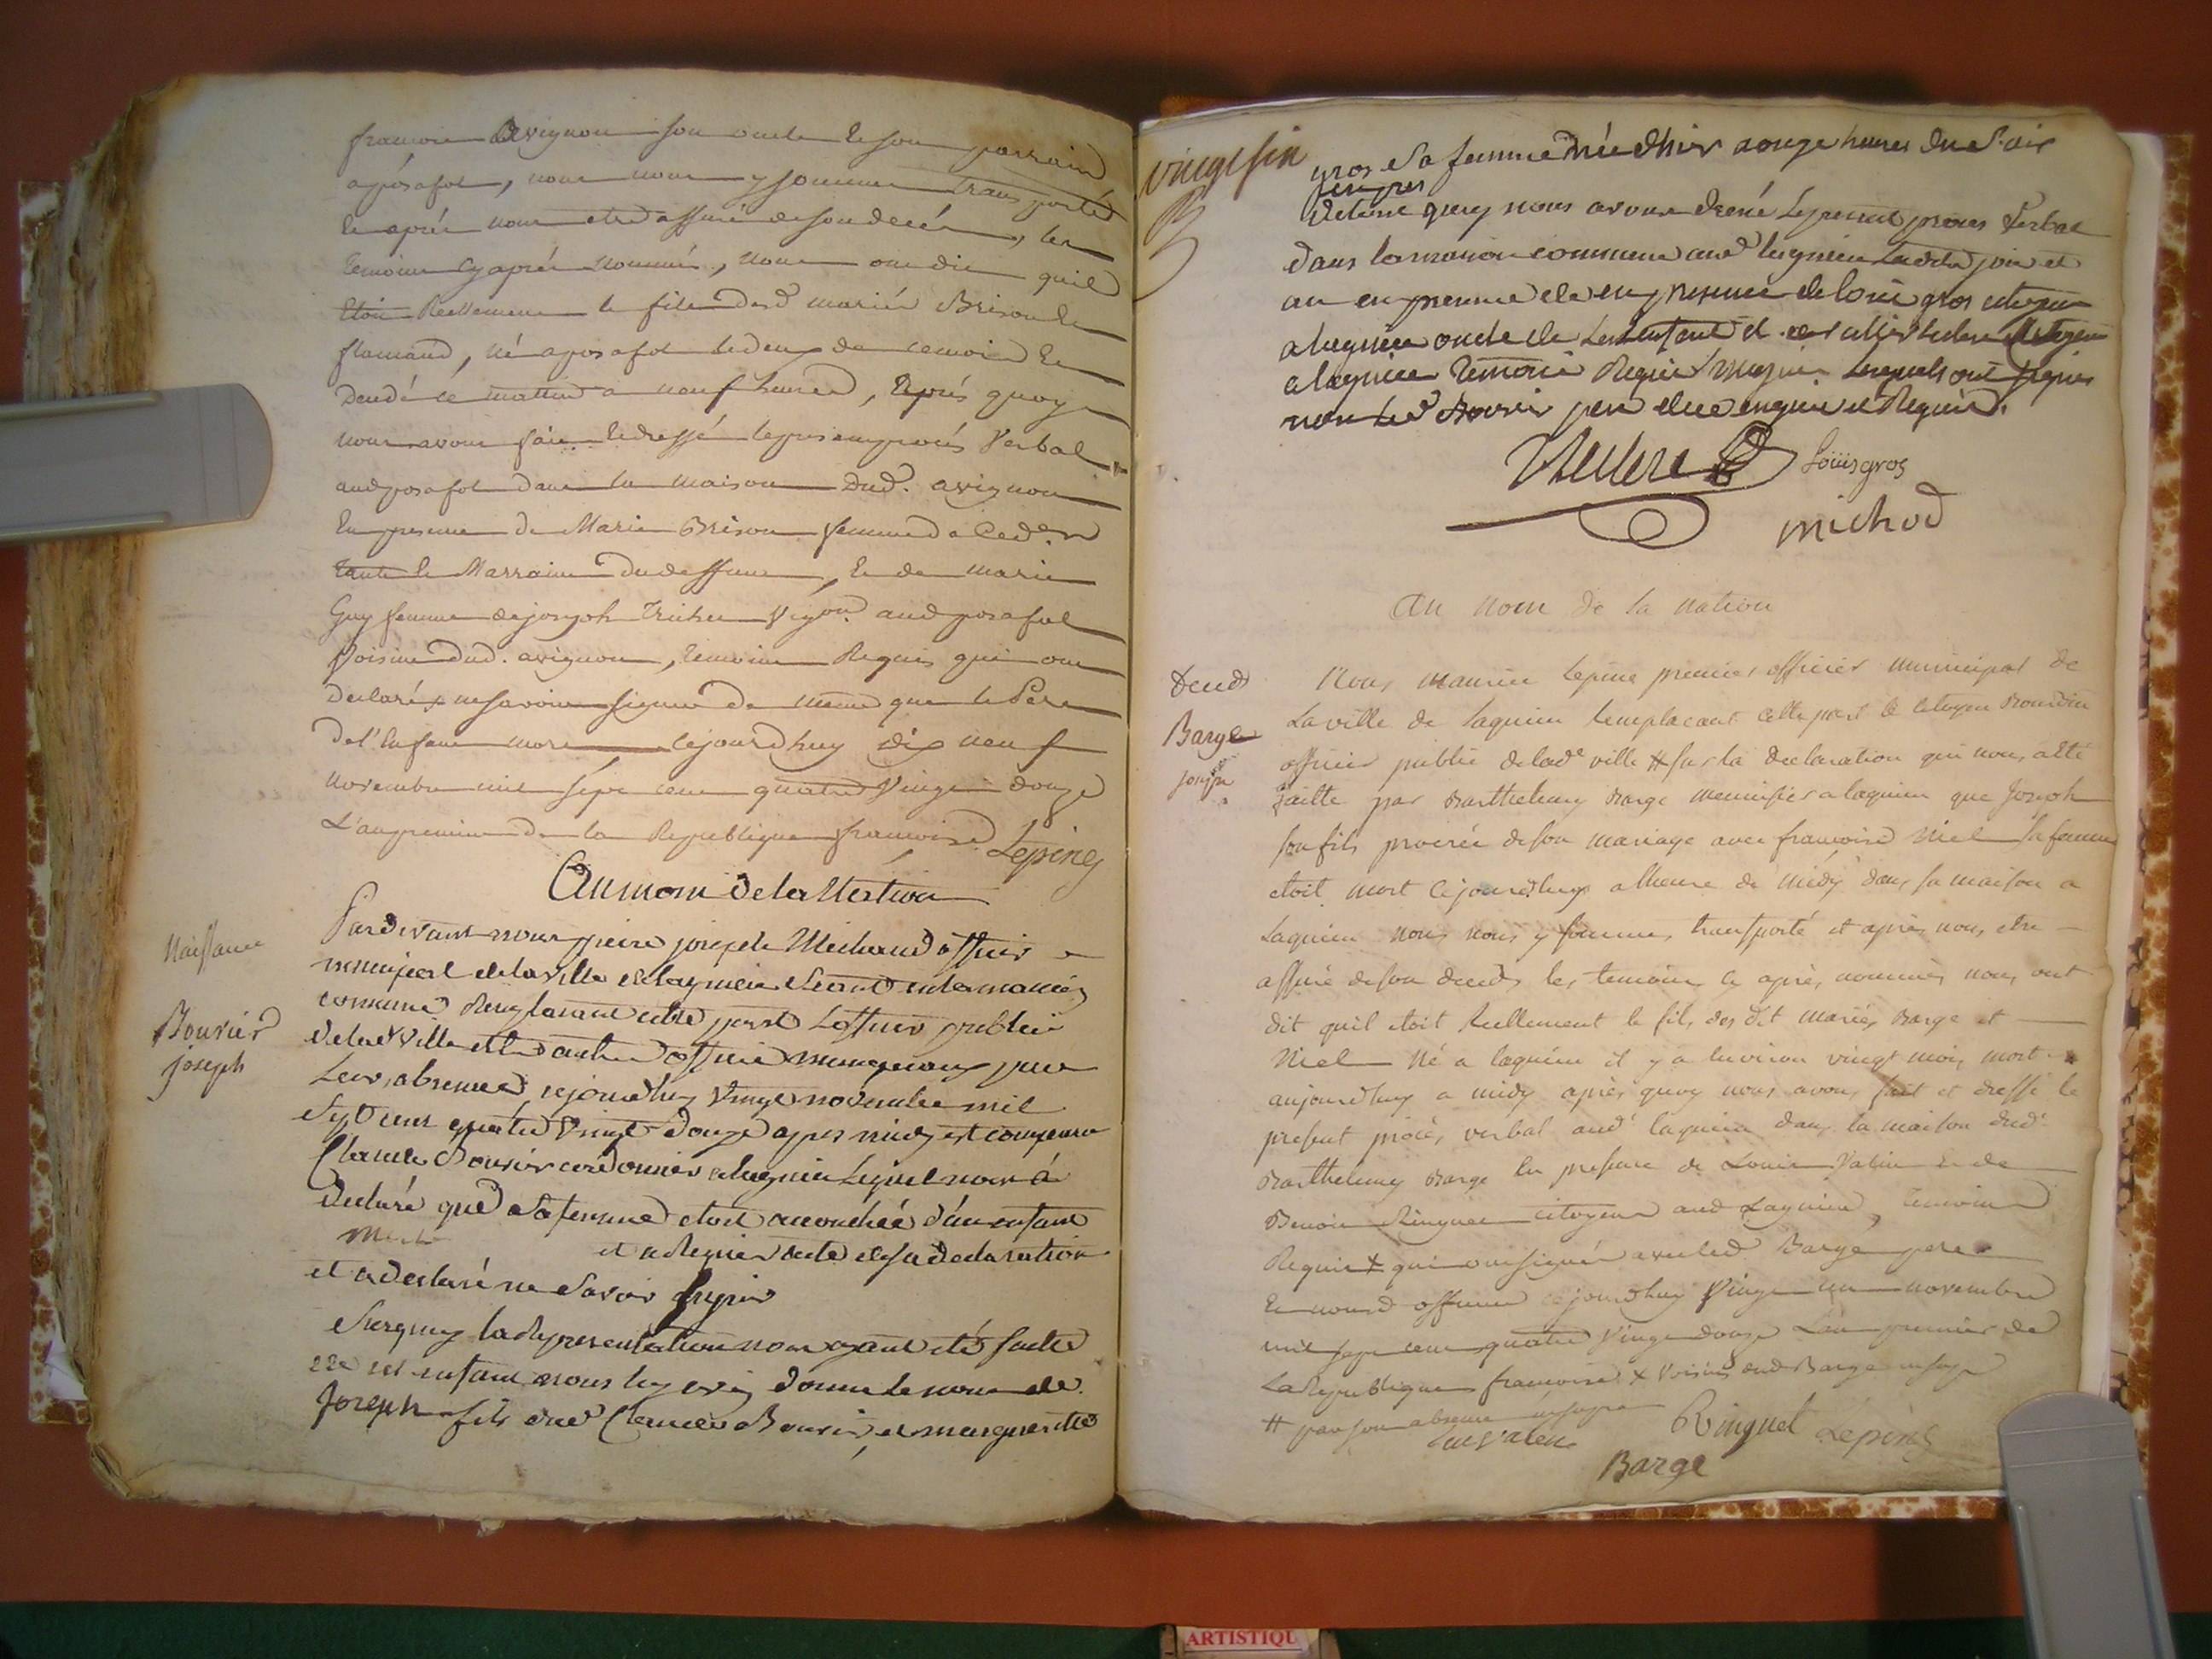 françoise avignon son oncle et son parrain
a posafol, nous nous y sommes transporté
et après nous etre assuré de son decés, les
temoins cy après nommés, nous ont dit quil
etoit Reellement le fils desd mariés Brison et
flamand, né a posafol le deux de ce mois et
decedé ce mattin a neuf heures, après quoy
nous avons fait et dressé le present procés Verbal
aud posafol dans la maison dud. avignon
En presence de Marie Brison femme
tante et Marraine du deffunt, et de marie
Guy femme de joseph Vigon aud posafol
Voisine dud. avignon, temoins Requis qui ont
declaré ne savoir signer de meme que le Pere
de l'Enfant mort cejourdhuy dix neuf
novembre mil sept cent quatre Vingt douze
L'an premier de la Republique françoise Lepine
Au nom de la Nation
Naissance
Bouvier
joseph
Pardevant nous pierre joseph Michaud officier
municipal de la ville de lagnieu Etant en la maison
comune Remplacant cette part Lofficier public
de lad Ville et les autres officiers municipaux pour
Leur absence, cejourdhuy Vingt novembre mil
Sept cent quatre Vingt Douze apres midy est comparu
Claude Bouvier cordonnier a lagnieu Lequel nous à
declaré que Sa femme etoit accouchée d'un enfant
et a Requis acte de sa declaration
et a declaré ne Savoir signer
Surquoy la Representation nous ayant été faitte
de cet enfant nous luy avons donné le nom de
Joseph fils dud Claude Bouvier, et margueritte
vingt six
gros Sa femme né dhier a onze heures du Soir
De tout quoy nous avons dressé Le present procès Verbal
dans la maison commune aud lagnieu Lesdits jour et
an en presence de louis gros citoyen
a lagnieu oncle de Lenfant et citoyen
a lagnieu temoins Requis Lesquels ont signés
non led Bouvier pere de ce enquis et Requis.
Louis gros
michod
Au nom de la nation
Deceds
Barge
joseph
Nous maurice Lepine premier officier municipal de
La ville de lagnieu Remplacant cette part le citoyen Bourdin
officier public de lade ville # sur la declaration qui nous a été
faitte par Barthelemy Barge menuisier a lagnieu que Joseph
son fils procréé de son mariage avec françoise Niel sa femme
etoit mort cejourdhuy a lheure de midy dans sa maison a
Lagnieu nous nous y sommes transporté et après nous etre
assuré de son deceds les temoins cy après nommés nous ont
dit quil etoit Reellement le fils des dit mariés Barge et
Niel né a lagnieu il y a Environ vingt mois mort
aujourdhuy a midy après quoy nous avons fait et dressé le
present procès verbal aud lagnieu dans la maison dud
Barthelemy Barge En presence de Louis Valin et de
Benoit Ringuet citoyens aud Lagnieu, temoins
Requis x qui ont signé avec led Barge pere
Et nousd officier cejourdhuy Vingt un novembre
mil sept cent quatre Vingt douze Lan premier de
La Republique françoise x Voisins dud Barge
# pour son absence
Ringuet Lepine
Barge
ARTISTIQU